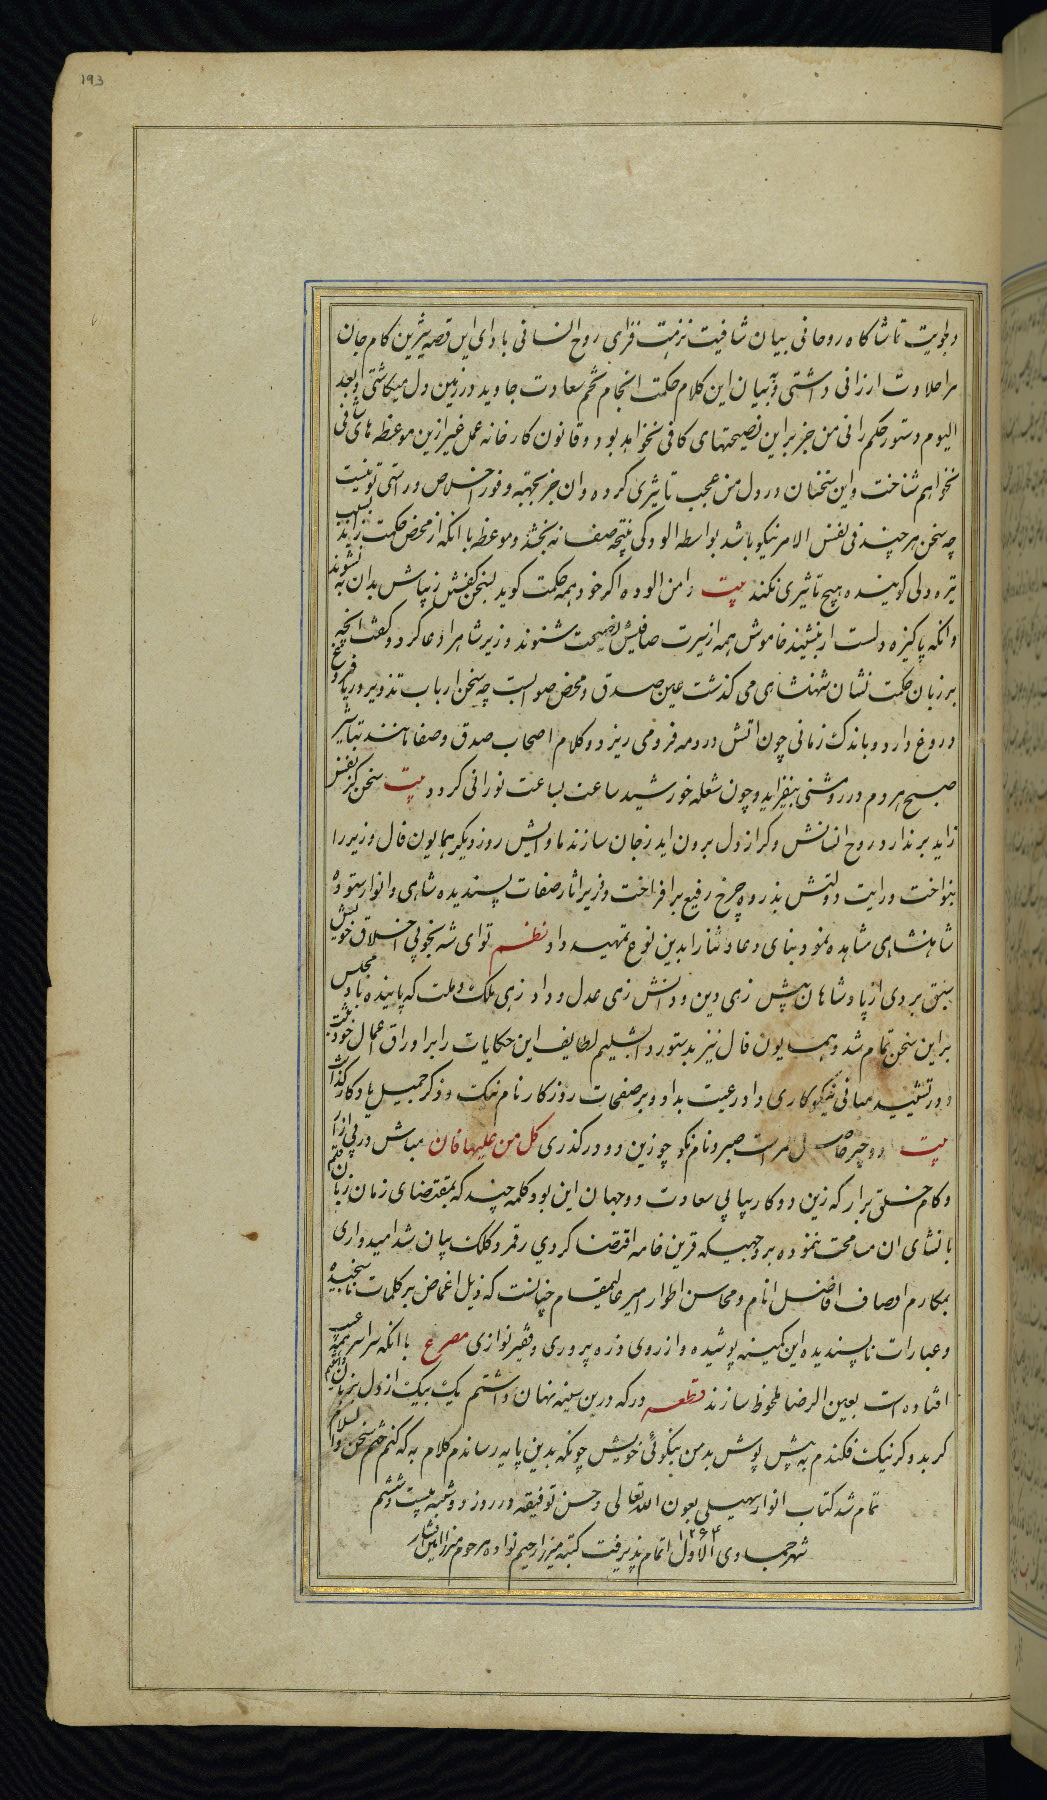 193
و بلوایت تماشاکاه روحانی ببیان شافیت نزهت فزای روح انسانی بادای این قصه شیرین کام جان
مرا حلاوت ارزانی داشتی و به بیان این کلام حکمت انجام تخم سعادت جاوید در زمین دل میکاشتی و بعد
الیوم دستور حکم رانی من جز بر این نصیحتهای کافی نخواهد بود و قانون کارخانه عمل غیر ازین موعظه های شافی
نخواهم شناخت و این سخنان در دل من عجب تاثیری کرده و ان جز بجهته وفور اخلاص و راستی تو نیست
چه سخن هر چند فی نفس الامر نیکو باشد بواسطه الودکی نتیجه صفا نه بخشد و موعظه با انکه از محض حکمت زاید بسبب
تیره دلی کوینده هیچ تاثیری نکند بیت دامن الوده اکر خود همه حکمت کوید بسخن کفتن زیباش بدان به نشوند
وانکه پاکیزه دلست ار بنشیند خاموش همه از سیرت صافیش نصیحت شنوند وزیر شاه را دعا کرد و کفت انچه
بر زبان حکمت نشان شهنشاهی می کذشت عین صدق و محض صوابست چه سخن ارباب تذویر و ریا فروغ
دروغ دارد و باندک زمانی چون اتش درومه فرومی ریزد و کلام اصحاب صدق و صفا مانند تباشیر
صبح هر دم در روشنی بیفزاید و چون شعله خورشید ساعت بساعت نورانی کردد بیت سخن کز نفس
زاید برندارد روح انسانش وکر از دل برون اید ز جان سازند ماوایش روز دیکر همایون فال وزیر را
بنواخت و رایت دولتش بذروه چرخ رفیع برافراخت وزیر اثار صفات پسندیده شاهی و انوار ستوده
شاهنشاهی مشاهده نمود بنای دعا و ثنا را بدین نوع تمهید داد نظم تو ای شه بخوبی اخلاق خویش
سبق بردی از پادشاهان پیش زهی دین و دانش زهی عدل و داد زهی ملک و ملت که پاینده باد مجلس
بر این سخن تمام شد و همایون فال نیز بدستور دابشلیم لطایف این حکایات را بر اوراق اعمال خود ثبت
و در تشیید مبانی نیکوکاری داد رعیت بداد و بر صفحات روزکار نام نیک و ذکر جمیل یادکار کذاشت
بیت دو چیز حاصل عمر است صبر و نام نکو چو زین دو درکذری کل من علیها فان مباش در پی ازار
و کام خلق برار که زین دو کار بیابی سعادت دو جهان این بود کلمه چند که بمقتضای زمان زبان قلم
بانشای ان مسامحت نموده بر وجهیکه قرین خامه اقتضا کردی رقمزد کلک بیان شد امیدواری
بمکارم اوصاف افاضل انام و محاسن اطوار امیر عالیمقام چنانست که ذیل اغماض بر کلمات ناسنجیده
و عبارات ناپسندیده این کمینه پوشیده و از روی ذره پروری و فقیر نوازی مصرع با انکه سراسر همه عیب
افتاده است بعین الرضا ملحوظ سازند قطعه در که درین سینه نهان داشتم یک بیک از دل بزبان
کر بد و کر نیک فکندم به پیش پوش بد من بنیکوئی خویش چونکه بدین پایه رساندم کلام به که کنم ختم سخن والسلام
تمام شد کتاب انوار سهیلی بعون الله تعالی و حسن توفیقه در روز دوشنبه بیست و ششم
شهر جمادی الاول ۱۲۶۴ اتمام پذیرفت کتبه میرزا رحیم نواده مرحوم میرزا